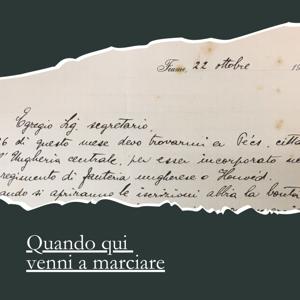 Fiume, 22 ottobre 19
Egregio Sig. segretario.
26 di questo mese devo trovarmi a Pécs, citta
Ungheria centrale, per esser incorporato ne
regimento di fanteria ungherese o Honvéd.
ando si apriranno le iscrizioni abbia la bonta
Quando qui
venni a marciare